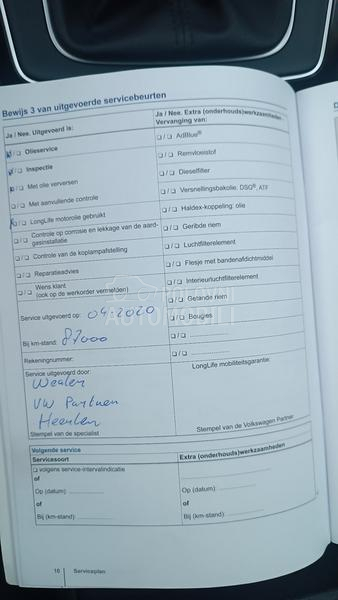 Bewijs 3 van uitgevoerde servicebeurten
Ja / Nee. Uitgevoerd is:
☑/❏ Olieservice
☑/❏ Inspectie
☑/❏ Met olie verversen
❏/❏ Met aanvullende controle
☑/❏ LongLife motorolie gebruikt
❏/❏ Controle op corrosie en lekkage van de aard-
gasinstallatie
❏/❏ Controle van de koplampafstelling
❏/❏ Reparatieadvies
❏/❏ Wens klant
(ook op de werkorder vermelden)
Service uitgevoerd op: 04-2020
Bij km-stand: 87000
Rekeningnummer:
Service uitgevoerd door:
VW Partner
Heerlen
Stempel van de specialist
Ja / Nee. Extra (onderhouds)werkzaamheden.
Vervanging van:
❏/❏ AdBlue®
❏/❏ Remvloeistof
❏/❏ Dieselfilter
❏/❏ Versnellingsbakolie: DSG®, ATF
❏/❏ Haldex-koppeling: olie
❏/❏ Geribde riem
❏/❏ Luchtfilterelement
❏/❏ Flesje met bandenafdichtmiddel
❏/❏ Interieurluchtfilterelement
❏/❏ Getande riem
❏/❏ Bougies
❏/❏
❏/❏
LongLife mobiliteitsgarantie:
Stempel van de Volkswagen Partner
Volgende service
Servicesoort
❏ volgens service-intervalindicatie
of
Op (datum):
of
Bij (km-stand):
Extra (onderhouds)werkzaamheden
Op (datum):
of
Bij (km-stand):
16 Serviceplan
AUTOMOBILI